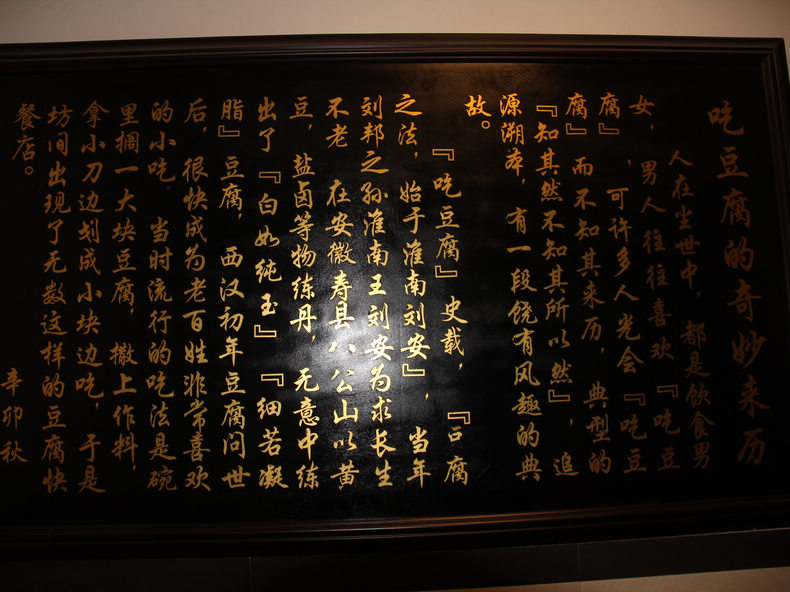 吃豆腐的奇妙来历
人在尘世中，都是饮食男
女，男人往往喜欢『吃豆
腐』，可许多人光会『吃豆
腐』而不知其来历，典型的
『知其然不知其所以然』，追
源溯本，有一段饶有风趣的典
故。
『吃豆腐』史载，『豆腐
之法，始于淮南刘安』，当年
刘邦之孙淮南王刘安为求长生
不老 在安徽寿县八公山以黄
豆，盐卤等物练丹，无意中练
出了『白如纯玉』『细若凝
脂』豆腐，西汉初年豆腐问世
后，很快成为老百姓非常喜欢
的小吃，当时流行的吃法是碗
里搁一大块豆腐，撒上作料，
拿小刀边划成小块边吃，于是
坊间出现了无数这样的豆腐快
餐店。
辛卯秋